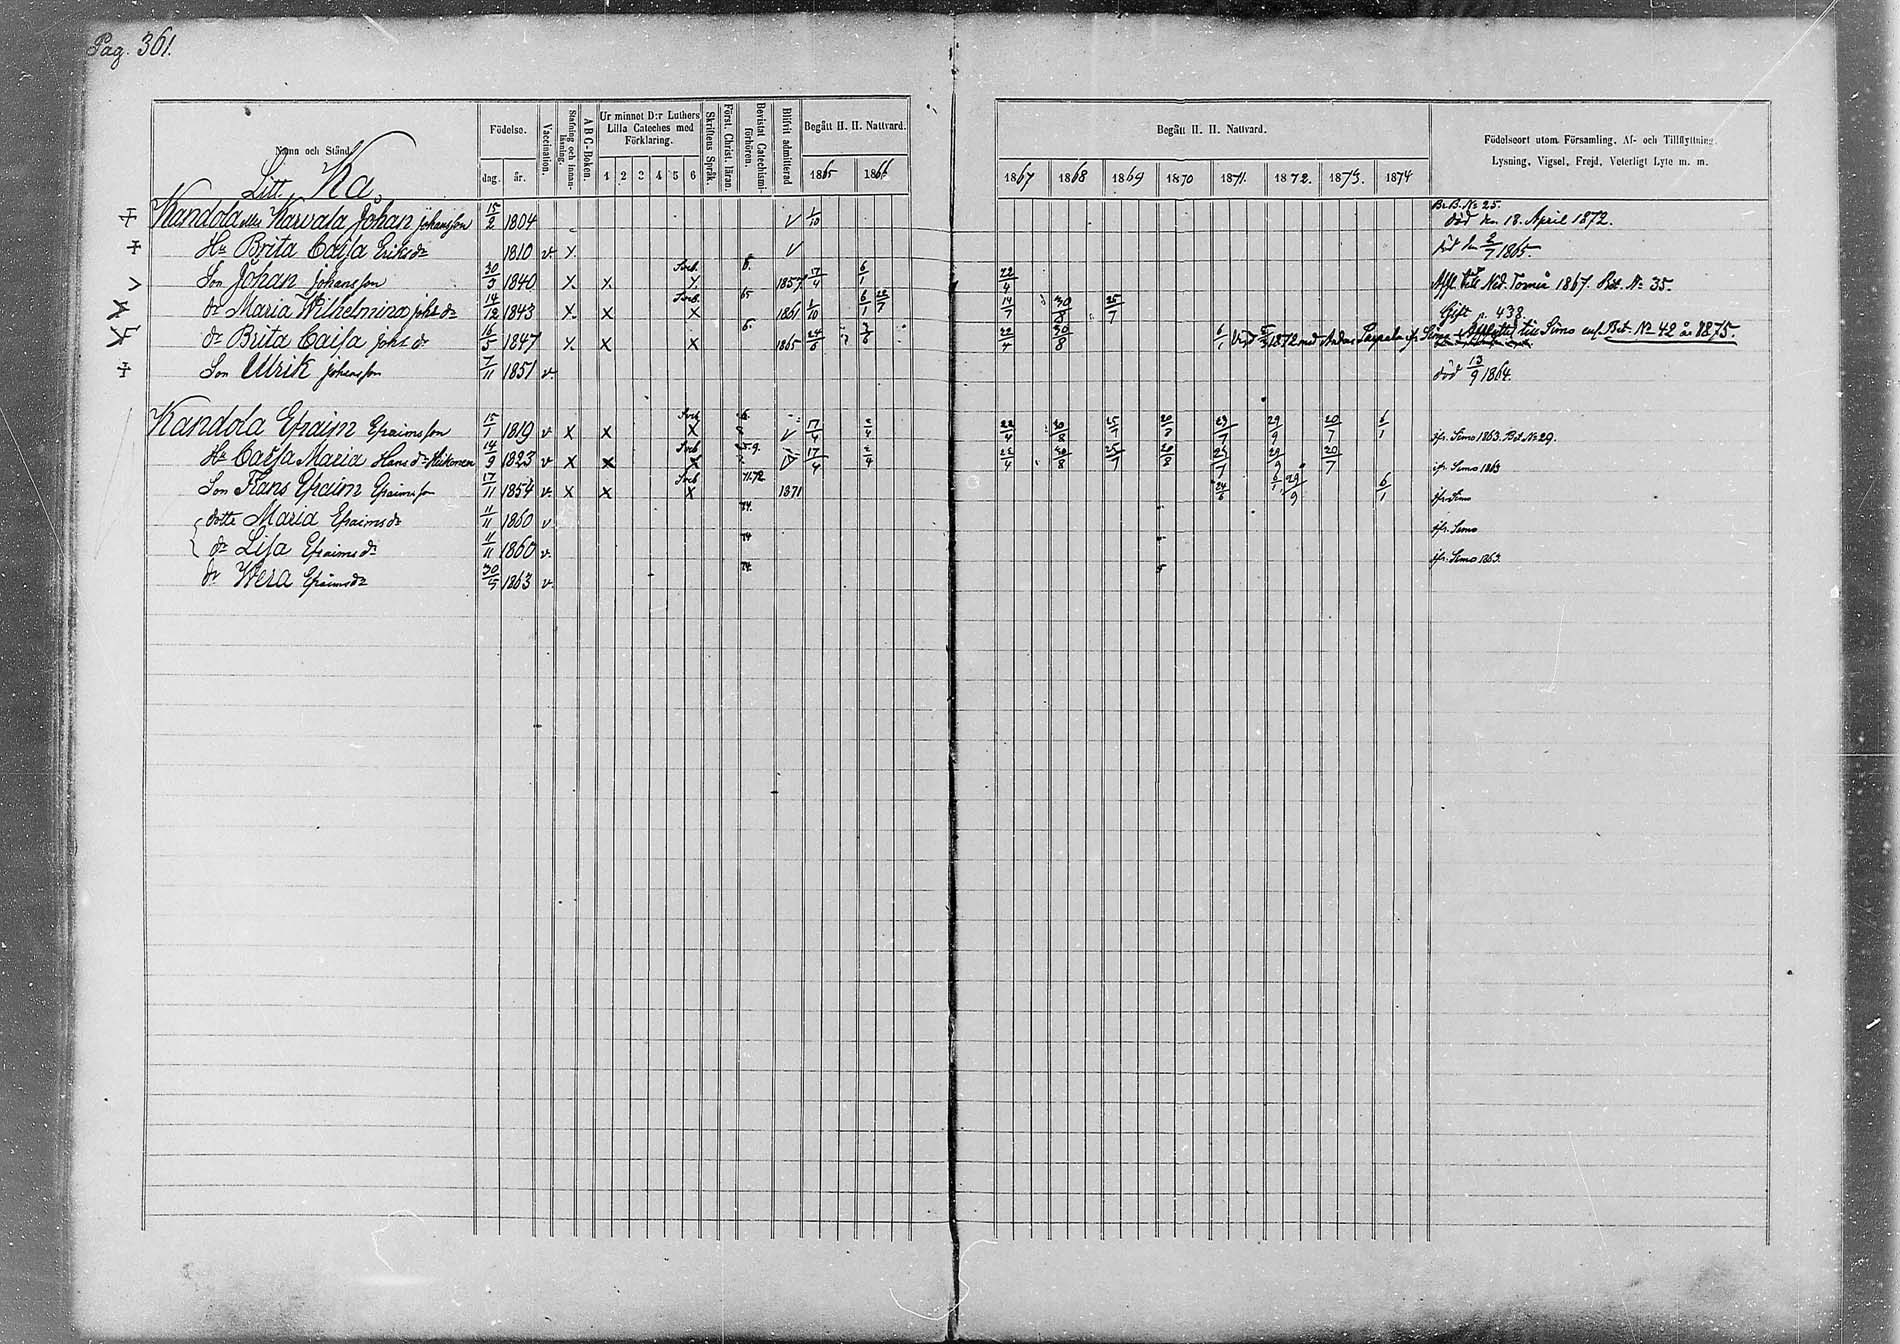 Pag. 361.
Namn och Stånd.
Litt. Ka
Födelse.
dag. år.
Vaccination.
Stafning och innanläsning.
A B C-Boken.
Ur minnet D:r Luthers Lilla Cateches med Förklaring.
1 2 3 4 5 6
Skriftens Språk.
Först. Christ. läran.
Bevistat Catechismi-förhören.
Blifvit admitterad
Begått H. H. Nattvard.
1865 1866
Begått H. H. Nattvard.
1867 1868 1869 1870 1871. 1872. 1873. 1874
Födelseort utom Församling, Af- och Tillflyttning,
Lysning, Vigsel, Frejd, Veterligt Lyte m. m.
Kandola eller Karvala Johan Johansson 15/2 1804 1/10 Br.B. No 25. död den 18. April 1872.
Hu Brita Caisa Eriksdr 1810 v. x död den 2/7 1865.
Son Johan Johansson 30/3 1840 x x Sveb. x 6. 1857 17/4 6/1 22/4 Ned. Torneå 1867. Bet. No 35.
dr Maria Wilhelmina Johs dr 14/12 1843 x x Sveb. x 65 1861 1/10 6/1 22/7 14/7 30/8 25/7 Gift p. 438.
dr Brita Caisa Johs dr 16/5 1847 x x x 6. 1865 24/6 20/4 30/8 6/1 1872 med Anders till Simo enl. Bet. No 42 år 1875.
Son Ulrik Johansson 7/11 1851 v. död 13/9 1864.
Kandola Efraim Efraimsson 15/1 1819 v x x Sveb x 17/4 2/4 22/4 30/8 25/7 20/8 23/7 29/9 20/7 6/1 ifr. Simo 1863. Bet. No 29.
Hu Caisa Maria Hansdr 14/9 1823 v x x Sveb x 17/4 2/4 22/4 30/8 25/7 20/8 23/7 29/9 20/7 ifr. Simo 1863
Son Frans Efraim Efraimsson 17/11 1854 v. x x Sveb x 71.72 1871 24/6 6/1 29/9 6/1 ifr. Simo
dotter Maria Efraimsdr 11/11 1860 v. 74. ifr. Simo
dr Lisa Efraimsdr 11/11 1860 v. 74 ifr. Simo 1863.
dr Wera Efraimsdr 30/5 1863 v. 74.